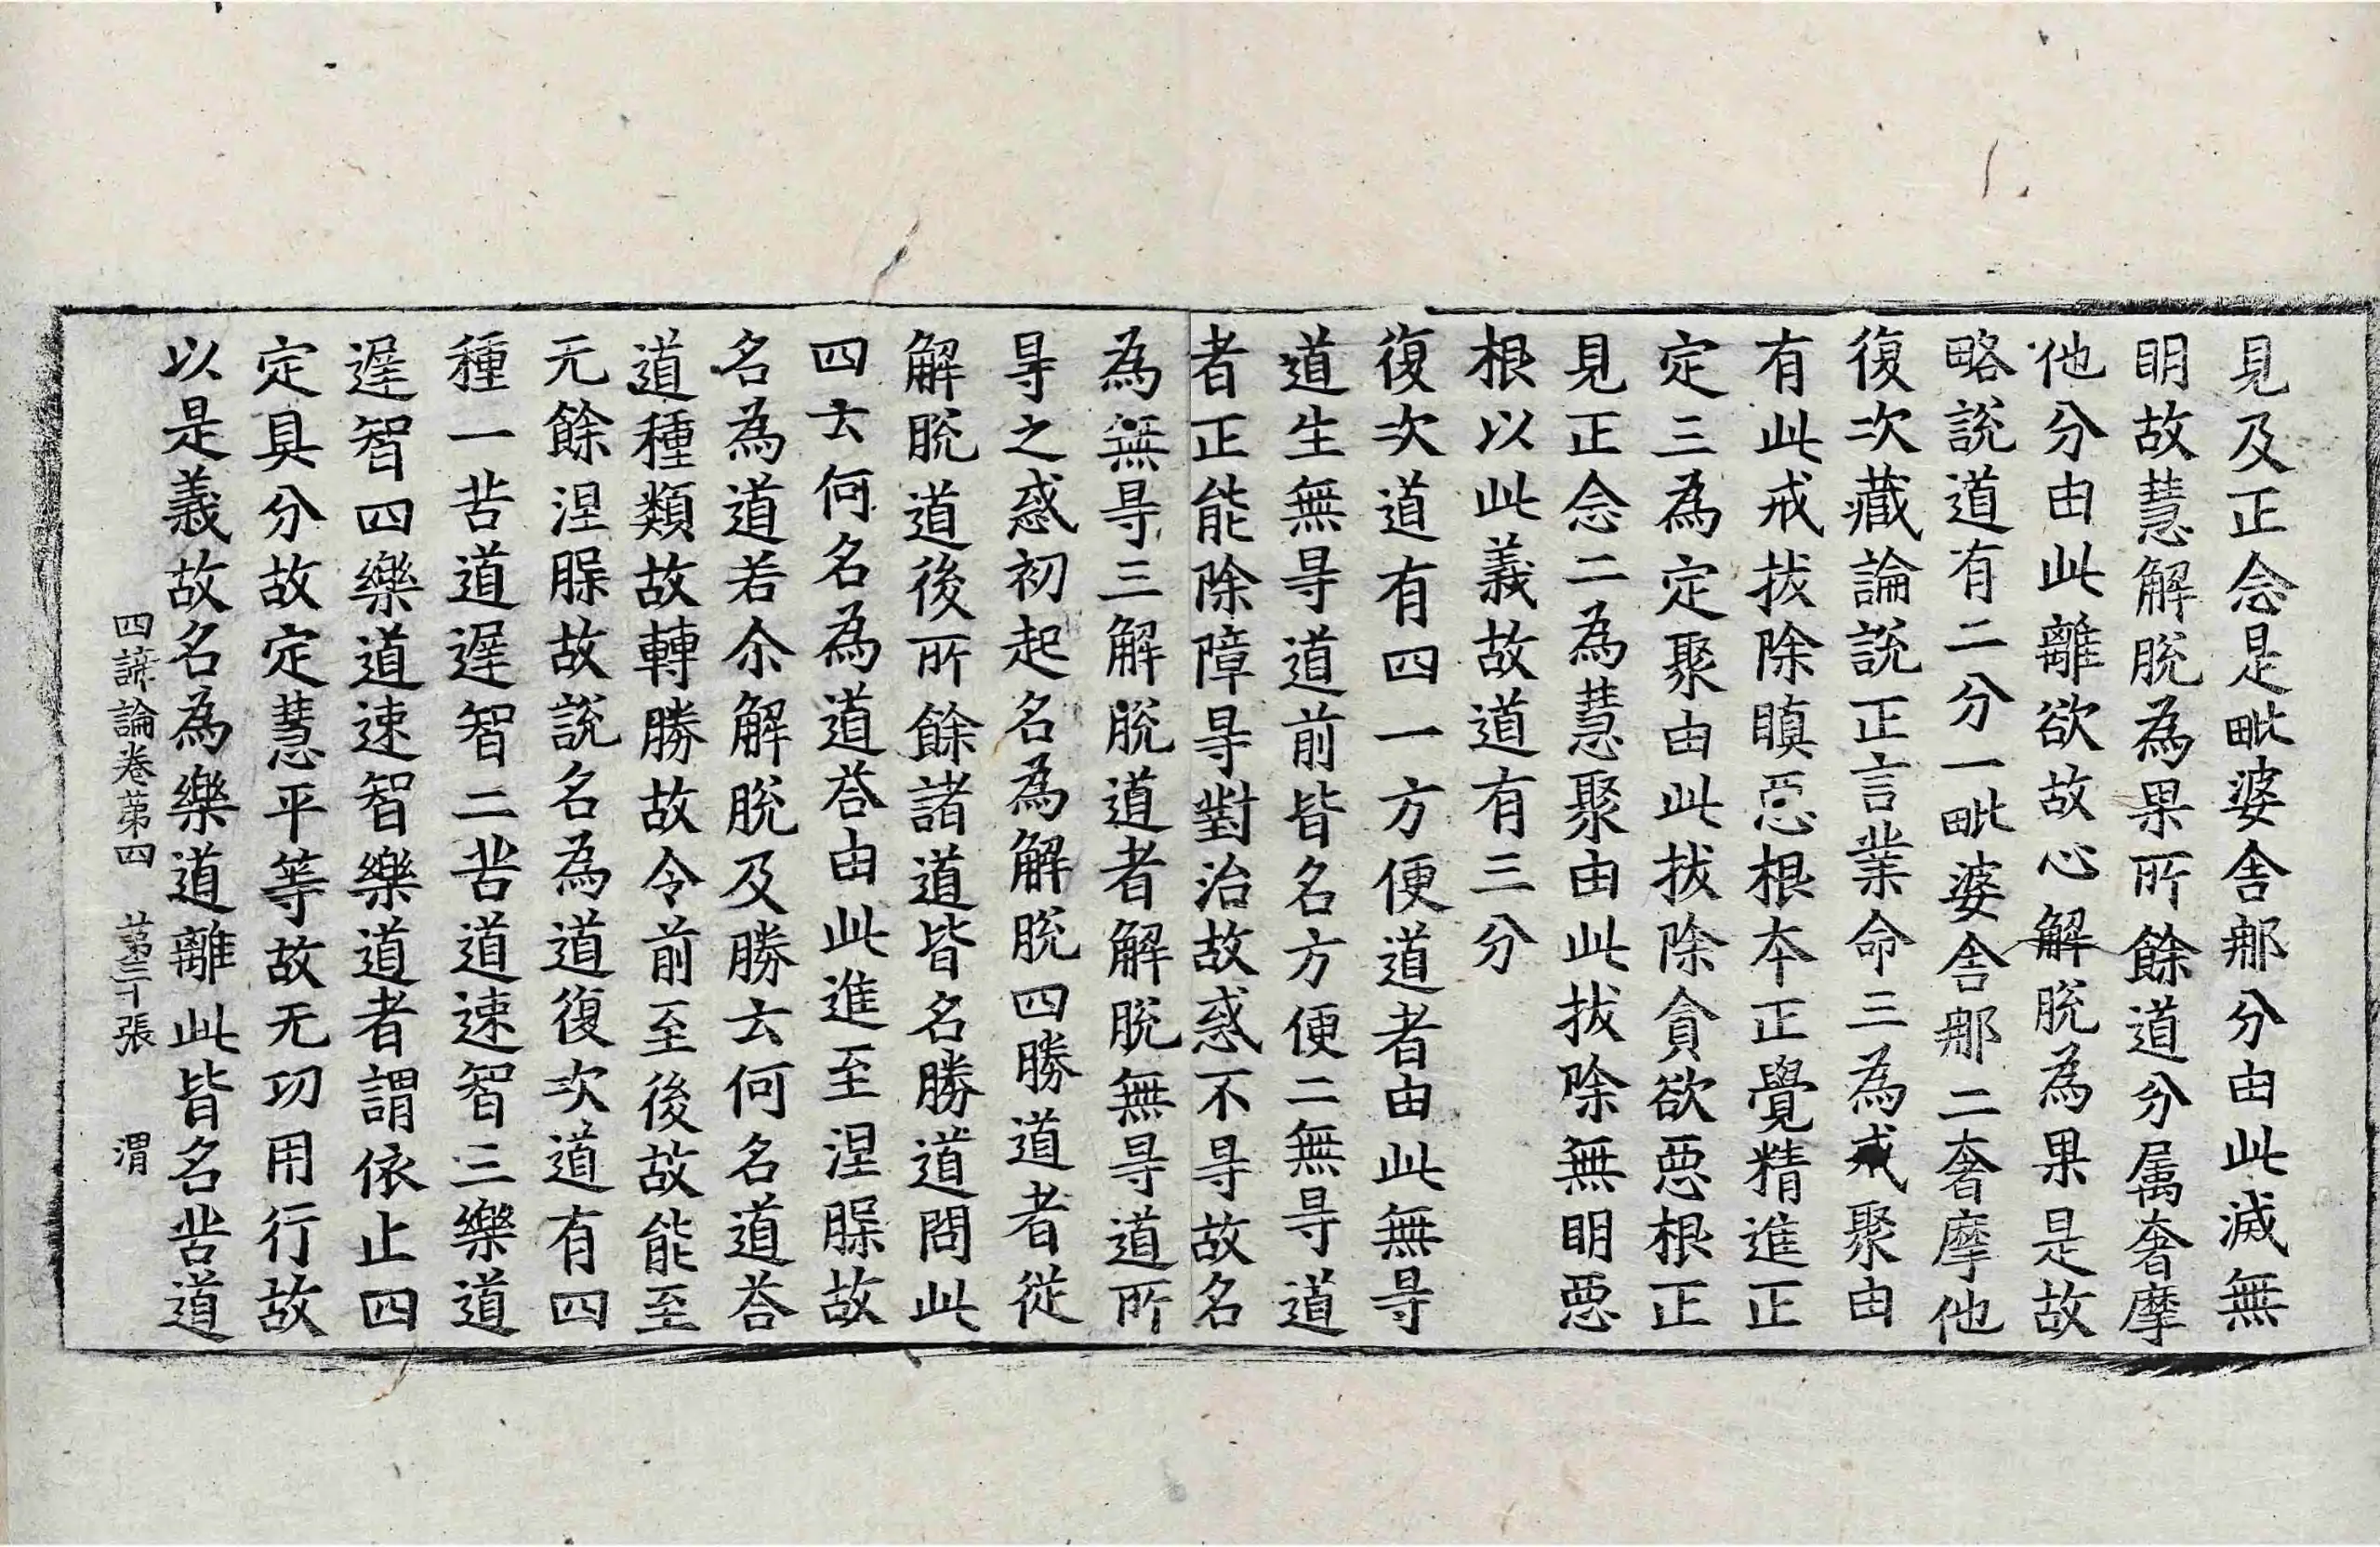 見及正念是毗婆舍那分由此滅無
明故慧解脫為果所餘道分属奢摩
他分由此離欲故心解脫為果是故
略說道有二分一毗婆舍那二奢摩他
復次藏論說正言業命三為戒聚由
有此戒拔除瞋惡根本正覺精進正
定三為定聚由此拔除貪欲惡根正
見正念二為慧聚由此拔除無明惡
根以此義故道有三分
復次道有四一方便道者由此無㝵
道生無㝵道前皆名方便二無㝵道
者正能除障㝵對治故惑不㝵故名
為無㝵三解脫道者解脫無㝵道所
㝵之惑初起名為解脫四勝道者從
解脫道後所餘諸道皆名勝道問此
四云何名為道荅由此進至涅槃故
名為道若尒解脫及勝云何名道荅
道種類故轉勝故令前至後故能至
无餘涅槃故說名為道復次道有四
種一苦道遅智二苦道速智三樂道
遅智四樂道速智樂道者謂依止四
定具分故定慧平等故无功用行故
以是義故名為樂道離此皆名苦道
四諦論卷苐四　苐二十張　渭